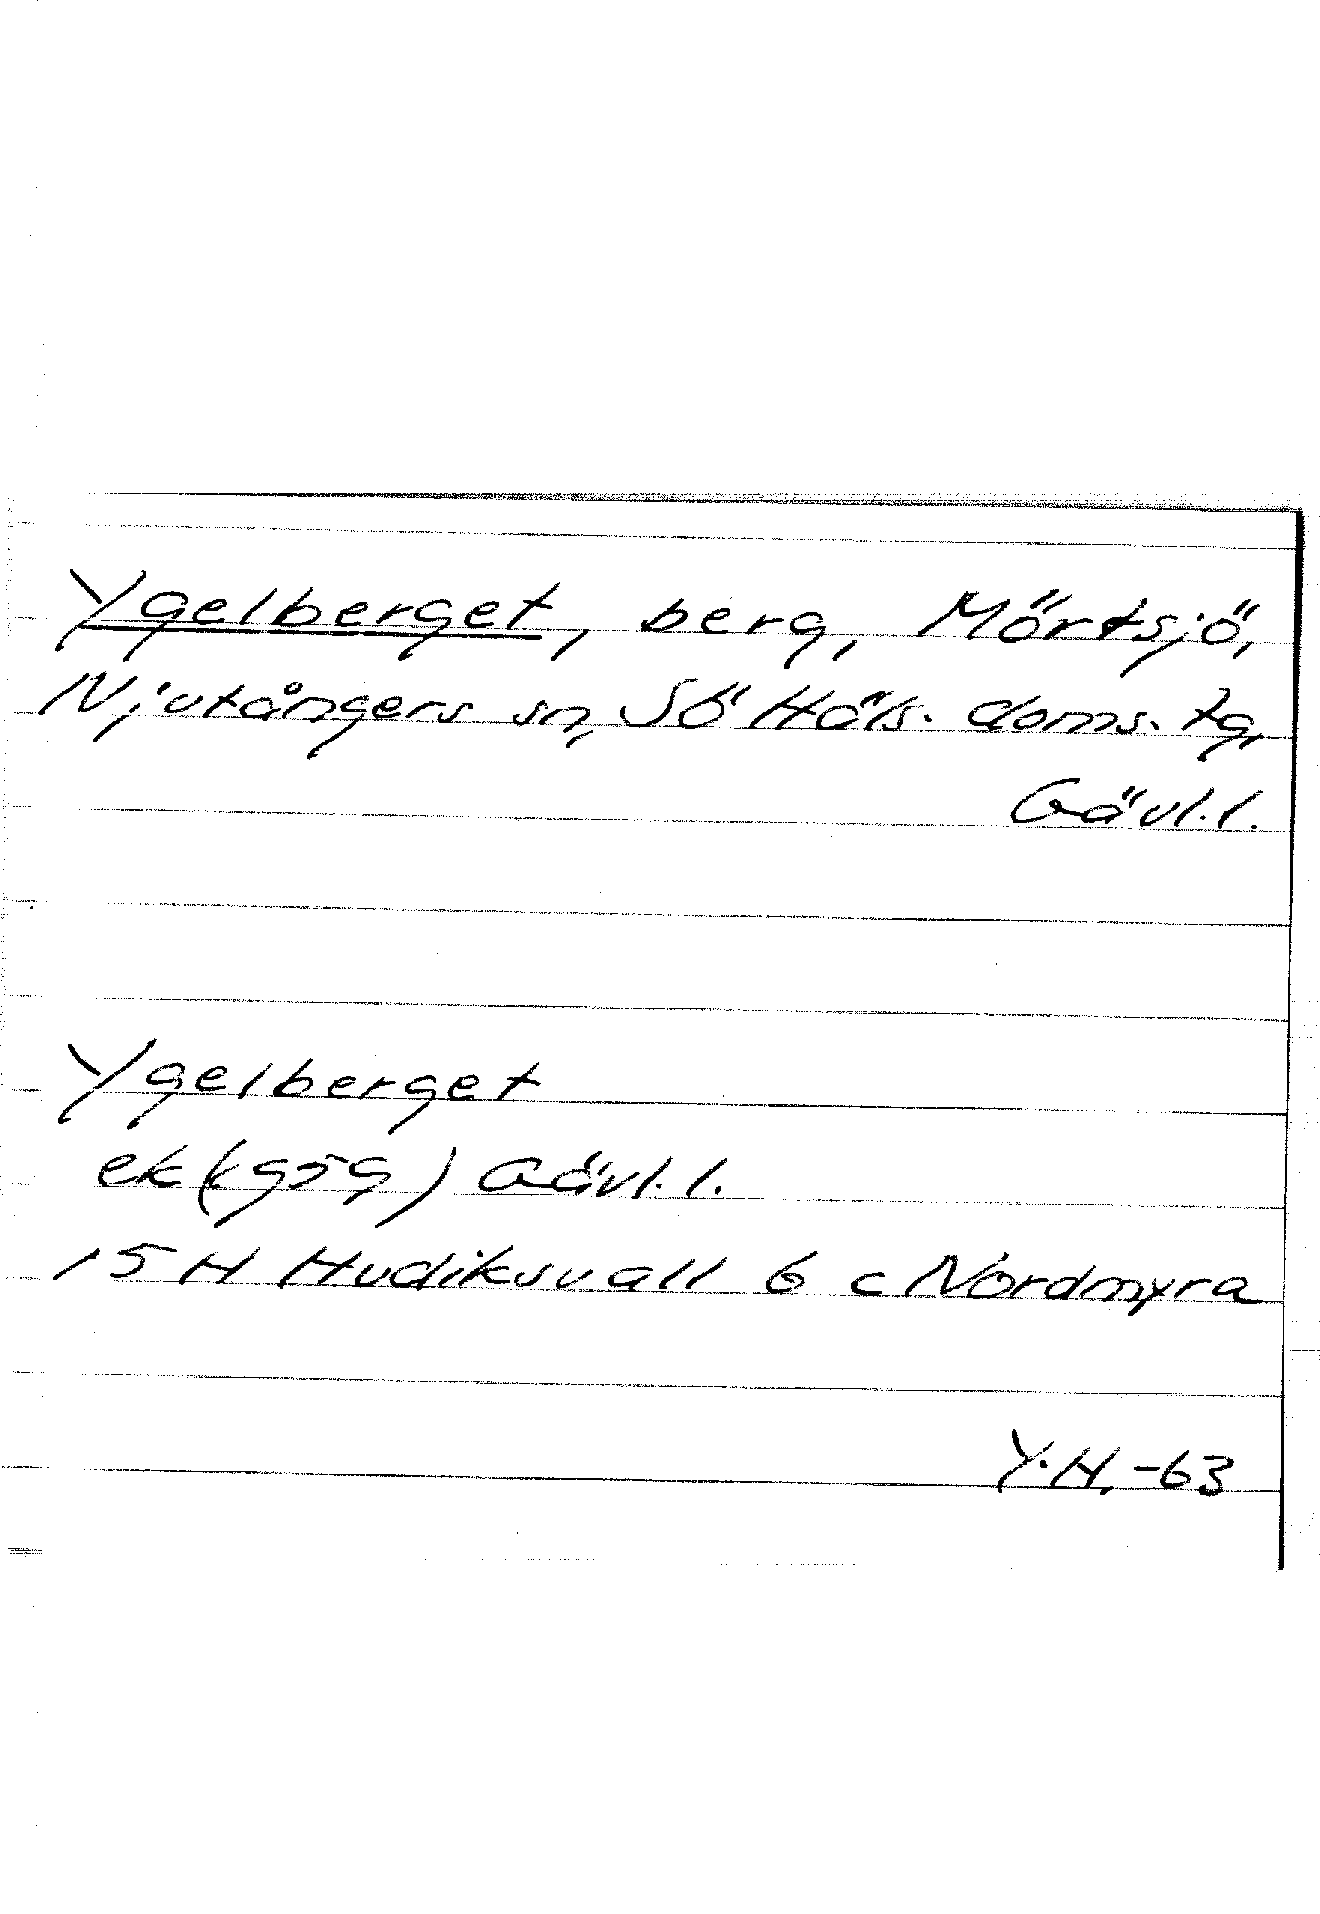 Ygelberget, berg, Mörtsjö,
Njutångers sn, Sö Häls. doms. tg,
Gävl.l.
Ygelberget
ek (1959) Gävl.l.
15 H Hudiksvall 6 c Nordmyra
Y.H. -63